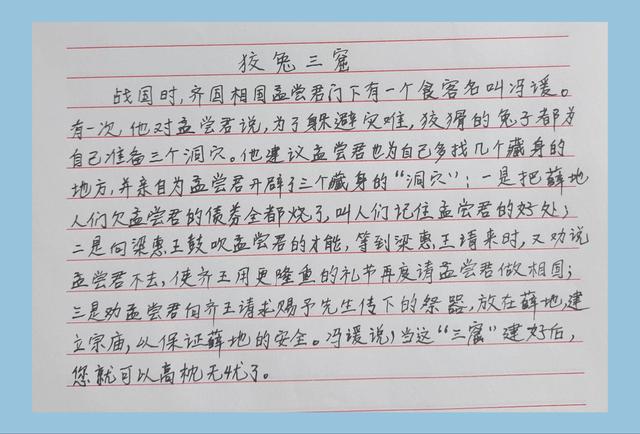 狡兔三窟
战国时,齐国相国孟尝君门下有一个食客名叫冯谖。
有一次,他对孟尝君说,为了躲避灾难,狡猾的兔子都为
自己准备三个洞穴。他建议孟尝君也为自己多找几个藏身的
地方,并亲自为孟尝君开辟了三个藏身的“洞穴”:一是把薛地
人们欠孟尝君的债券全都烧了,叫人们记住孟尝君的好处;
二是向梁惠王鼓吹孟尝君的才能,等到梁惠王请来时,又劝说
孟尝君不去,使齐王用更隆重的礼节再度请孟尝君做相国;
三是劝孟尝君向齐王请求赐予先生传下的祭器,放在薛地,建
立宗庙,以保证薛地的安全。冯谖说,当这“三窟”建好后,
您就可以高枕无忧了。